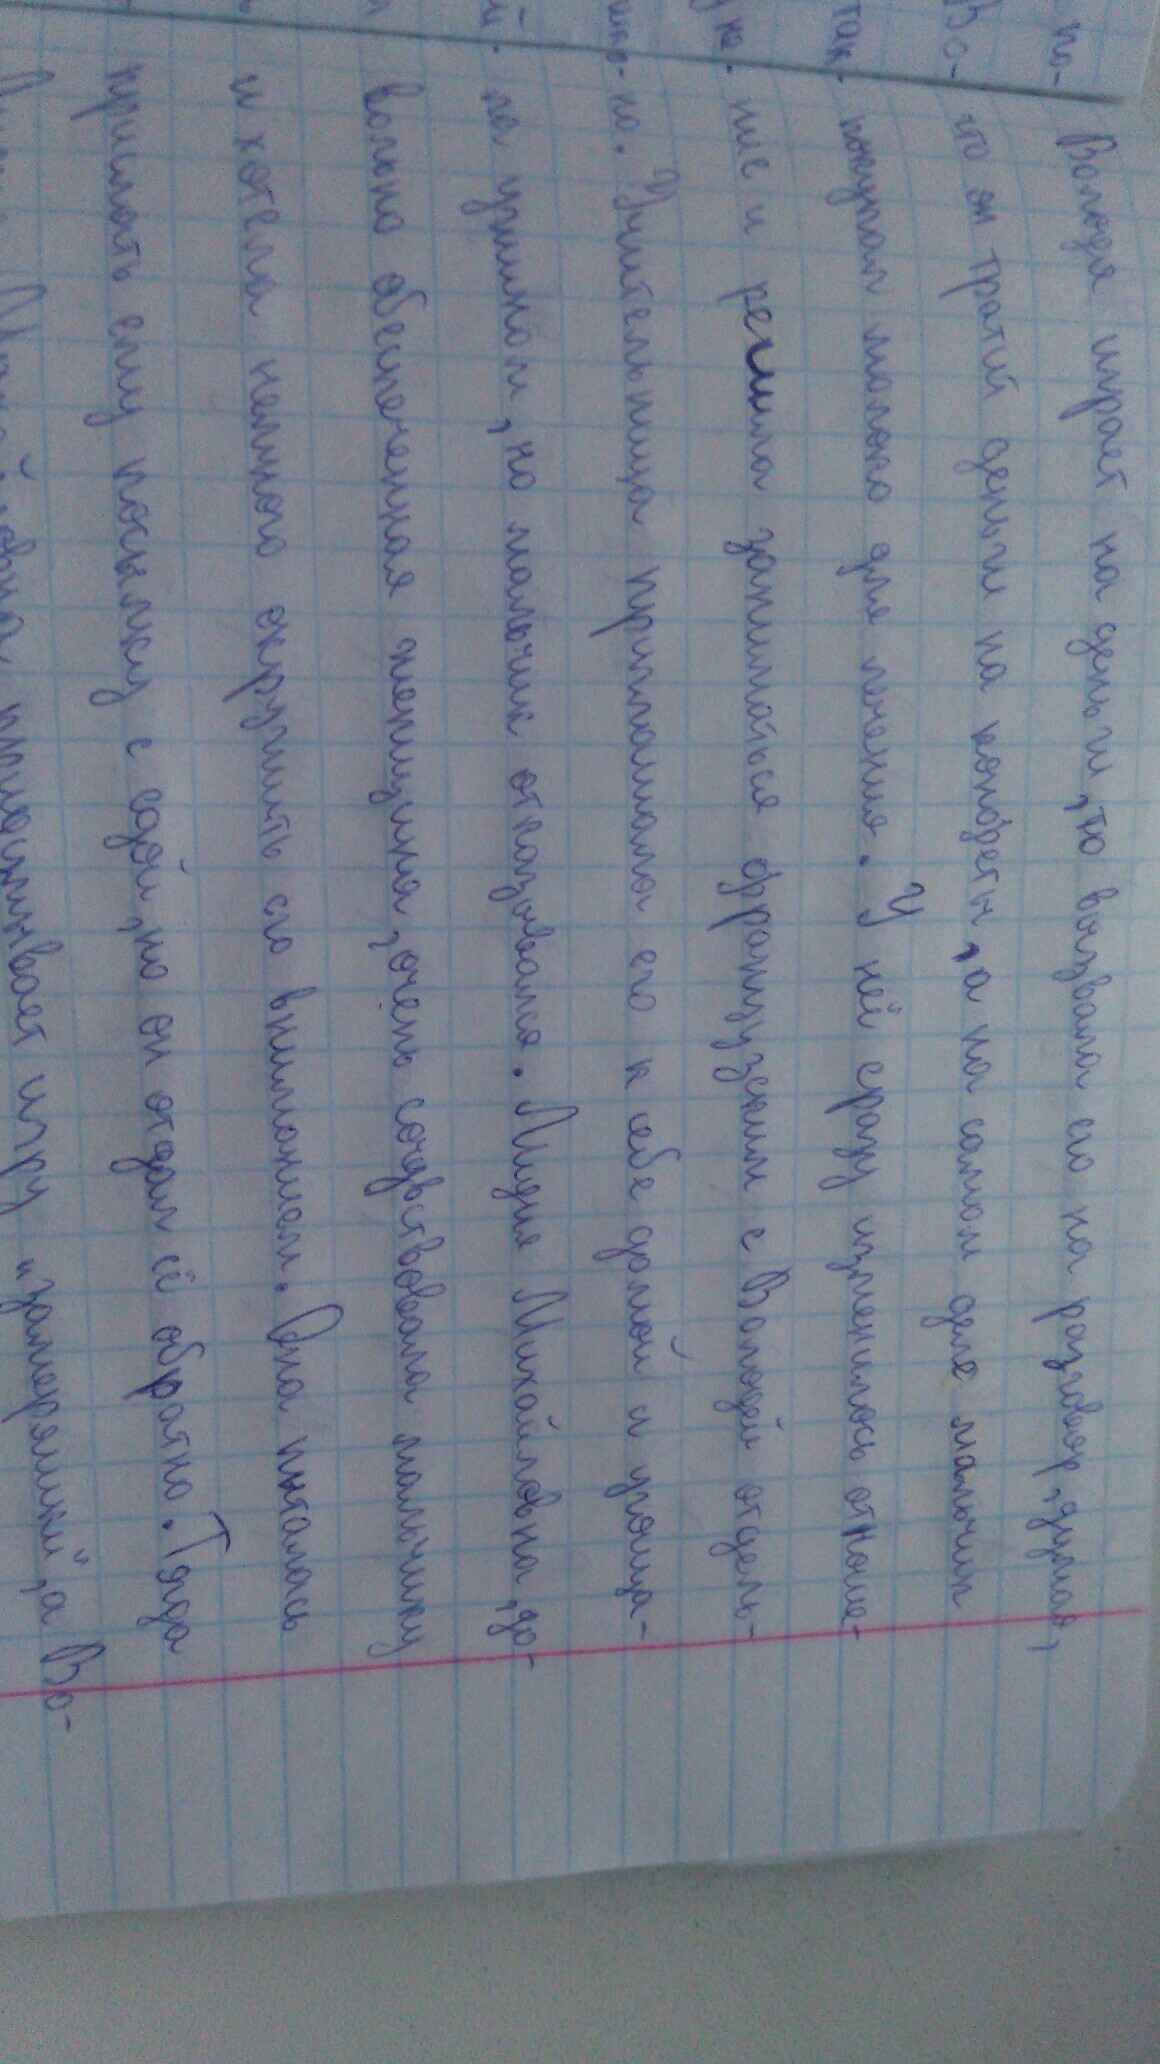 Володя играет на деньги, то вызвала его на разговор, думая,
что он тратий деньги на конфеты, а на самом деле мальчик
покупал молоко для лечения. У ней сразу изменилось отноше-
ние и решила заниматься французским с Володей отдель-
но. Учительница приглашала его к себе домой и угоща-
ла ужином, но мальчик отказовался. Лидия Михайловна, до-
вольно обеспеченная женщина, очень сочувствовала мальчику
и хотела немного окружить его вниманием. Она пыталась
прислать ему посылку с едой, но он отдал её обратно. Тогда
придумывает игру "замеряшки", а Во-
по-
Во-
так-